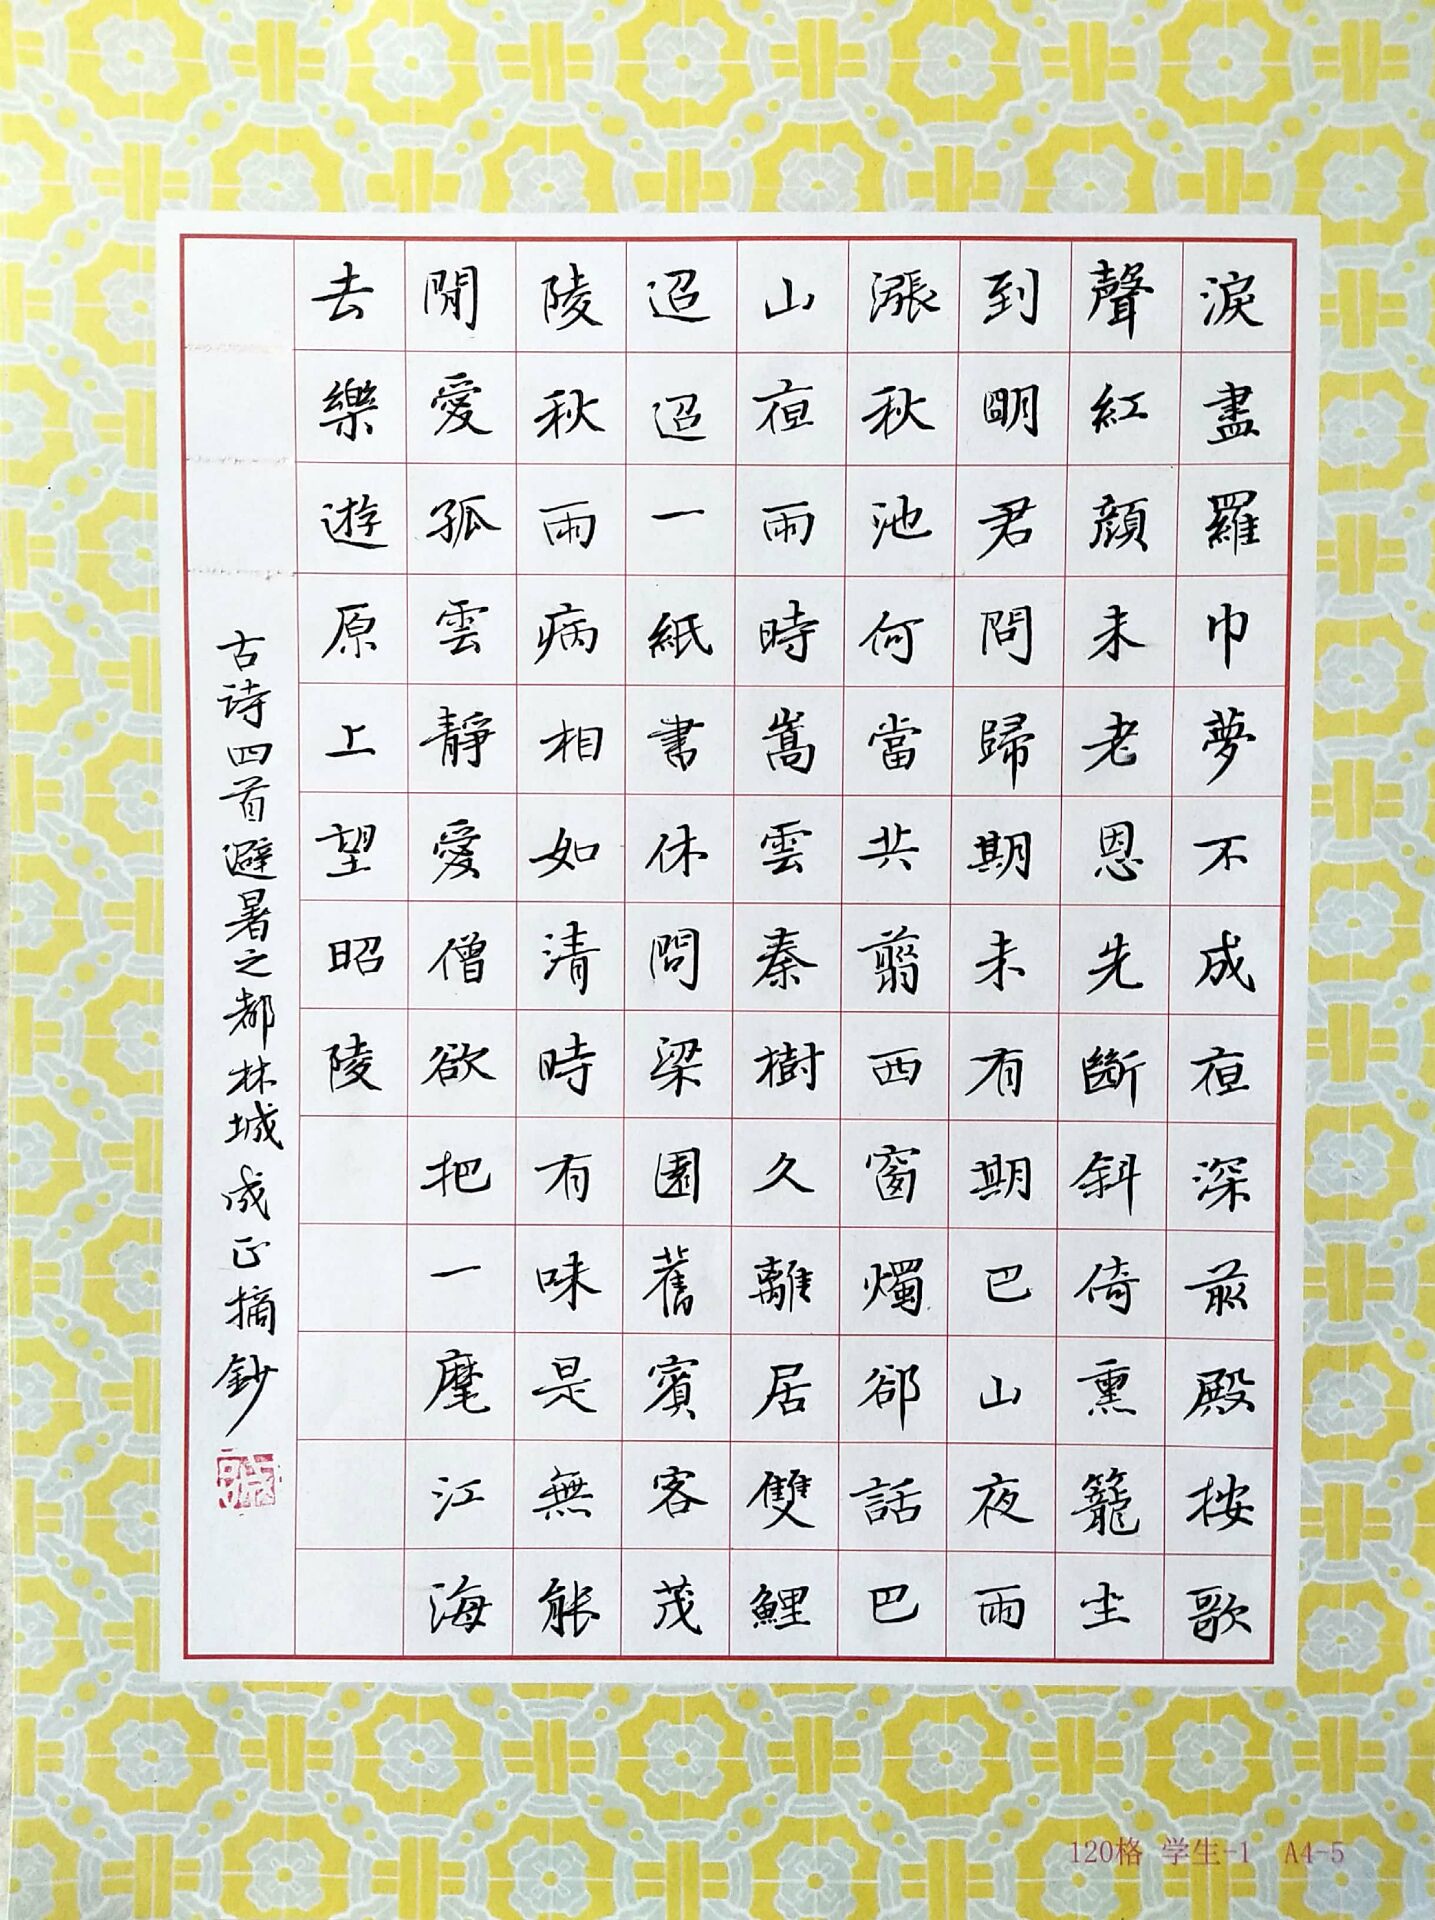 淚盡羅巾夢不成夜深前殿按歌
聲紅顏未老恩先斷斜倚熏籠坐
到明君問歸期未有期巴山夜雨
漲秋池何當共翦西窗燭卻話巴
山夜雨時嵩雲秦樹久離居雙鯉
迢迢一紙書休問梁園舊賓客茂
陵秋雨病相如清時有味是無能
閒愛孤雲靜愛僧欲把一麾江海
去樂遊原上望昭陵
古诗四首避暑之都林城成正摘鈔
120格 学生-1 A4-5